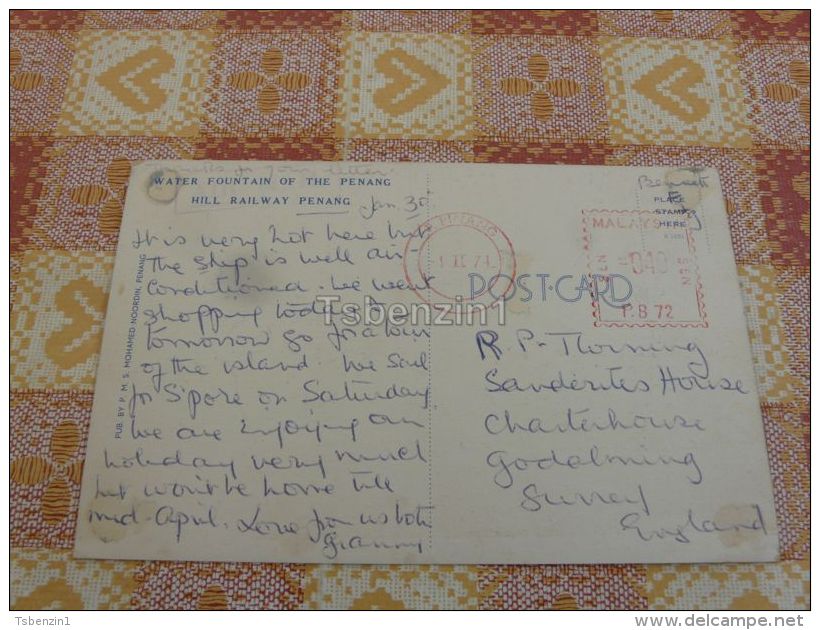 for your letter.
WATER FOUNTAIN OF THE PENANG
HILL RAILWAY PENANG
Jan. 30
It is very hot here but
the ship is well air
conditioned. We went
shopping today &
tomorrow go for a tour
of the island. We sail
for S'pore on Saturday
We are enjoying our
holiday very much
but won't be home till
mid-April. Love from us both
Granny
PUB. BY P. M. S. MOHAMED NOORDIN, PENANG
POST-CARD
PINANG
II 71
Bennett
PLACE
STAMP
HERE
MALAYSIA
040
P.B 72
R. P. Thorning
Sanderites House
Charterhouse
Godalming
Surrey
England
Tsbenzin1
Tsbenzin1
www.delcampe.net